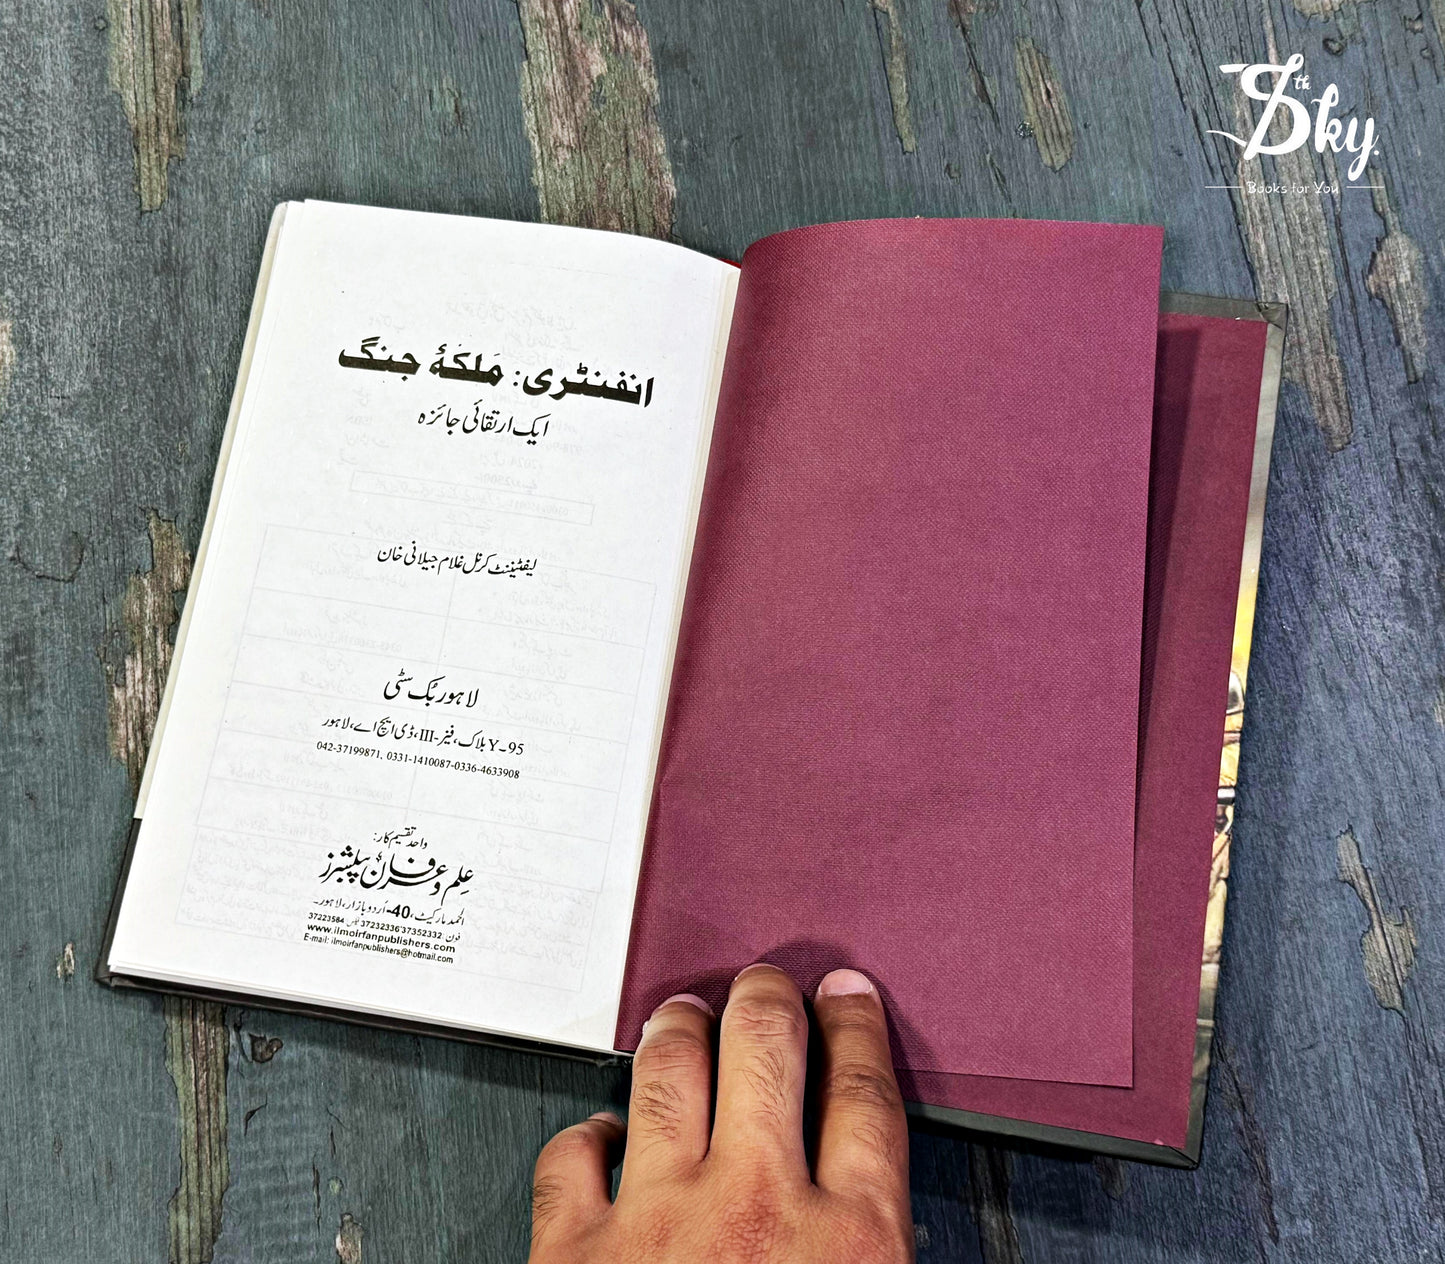 انفنٹری: مَلکۂ جنگ
ایک ارتقائی جائزہ
لیفٹیننٹ کرنل غلام جیلانی خان
لاہور بُک سٹی
95-Y بلاک، فیز-III، ڈی ایچ اے، لاہور
042-37199871, 0331-1410087-0336-4633908
واحد تقسیم کار:
علم و عرفان پبلشرز
الحمد مارکیٹ، 40-اُردو بازار، لاہور۔
فون: 37232336'37352332 فیکس: 37223584
www.ilmoirfanpublishers.com
E-mail: ilmoirfanpublishers@hotmail.com
the Sky.
Books for You